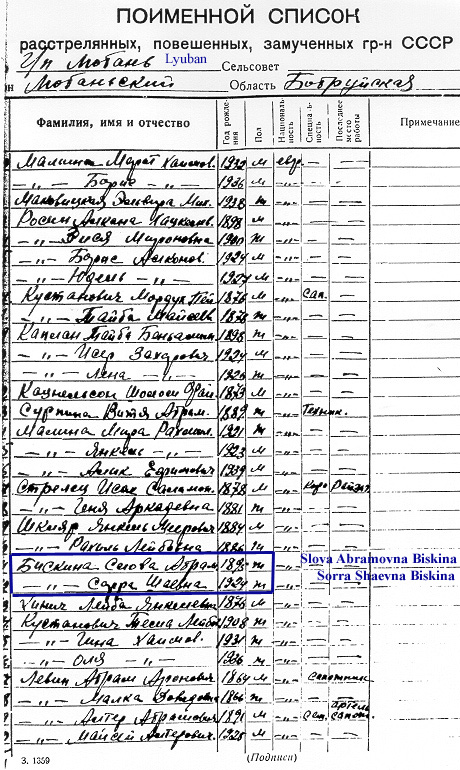 ПОИМЕННОЙ СПИСОК
расстрелянных, повешенных, замученных гр-н СССР
Lyuban Сельсовет
Область Бобруйская
Фамилия, имя и отчество Год рождения Пол Национальность Специальность Последнее место работы Примечание
Малина Марат Хаимов. 1932 м евр. — —
— „ — Борис — „ — 1936 м — „ — — —
Маковицкая Эльвира Мих. 1938 ж — „ — — —
Росин 1898 м — „ — — —
— „ — Зися Мироновна 1900 ж — „ — — —
— „ — Борис 1924 м — „ — — —
— „ — Юдель — „ — 1927 м — „ — — —
Кустанович Мордух 1876 м — „ — Сап. —
— „ — Тайба 1878 ж — „ — — —
Каплан Тайба 1898 ж — „ — — —
— „ — Исер Захарович 1924 м — „ — — —
— „ — Лена — „ — 1926 ж — „ — — —
Кацнельсон 1873 м — „ — — —
Витя Абрам. 1889 ж — „ — Техник. —
Малина Мира 1921 ж — „ — — —
— „ — Янкель — „ — 1923 м — „ — — —
— „ — Алик Ефимович 1939 м — „ — — —
Стрелец Исак Саламон. 1878 м — „ —
— „ — Геня Аркадевна 1881 ж — „ — — —
Шкляр Янкель 1884 м — „ — — —
— „ — Рахиль Лейбовна 1886 ж — „ — — —
Бискина Слова Абрам. ж Slova Abramovna Biskina
— „ — Сарра Шаевна 1924 ж Sorra Shaevna Biskina
Лейба Янкелевич 1876 м — „ — — —
Кустанович Лейбов. 1908 ж — „ — — —
— „ — Гина Хаимов. 1931 ж — „ — — —
— „ — Оля — „ — 1936 ж — „ — — —
Левин Абрам Аронович 1864 м — „ — сапожник —
— „ — Малка 1866 ж — „ — — артель
— „ — Алтер Абрамович 1891 м — „ — сап. сапож.
— „ — Майсей Алтерович 1928 м — „ — — —
З. 1359 (Подписи)